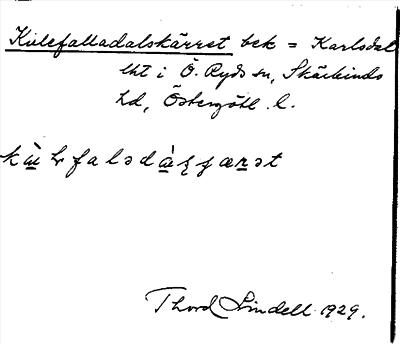 Kolefalladalskärret bek = Karlsdal
lht i Ö. Ryds sn, Skärkinds
hd, Östergötl. l.
Thord Lindell 1929.